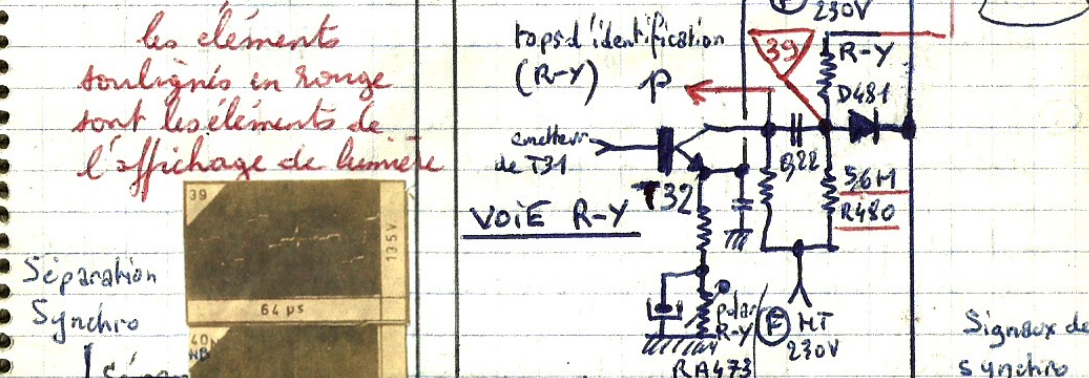 les éléments
soulignés en rouge
sont les éléments de
l'affichage de lumière
39
135V
64 µs
Séparation
Synchro
40
NB
F
230V
tops d'identification
(R-Y)
P
39
R-Y
D481
emetteur
de T31
T32
0,22
56M
R480
VOIE R-Y
polar
R-Y
F
HT
230V
RA473
Signaux de
synchro